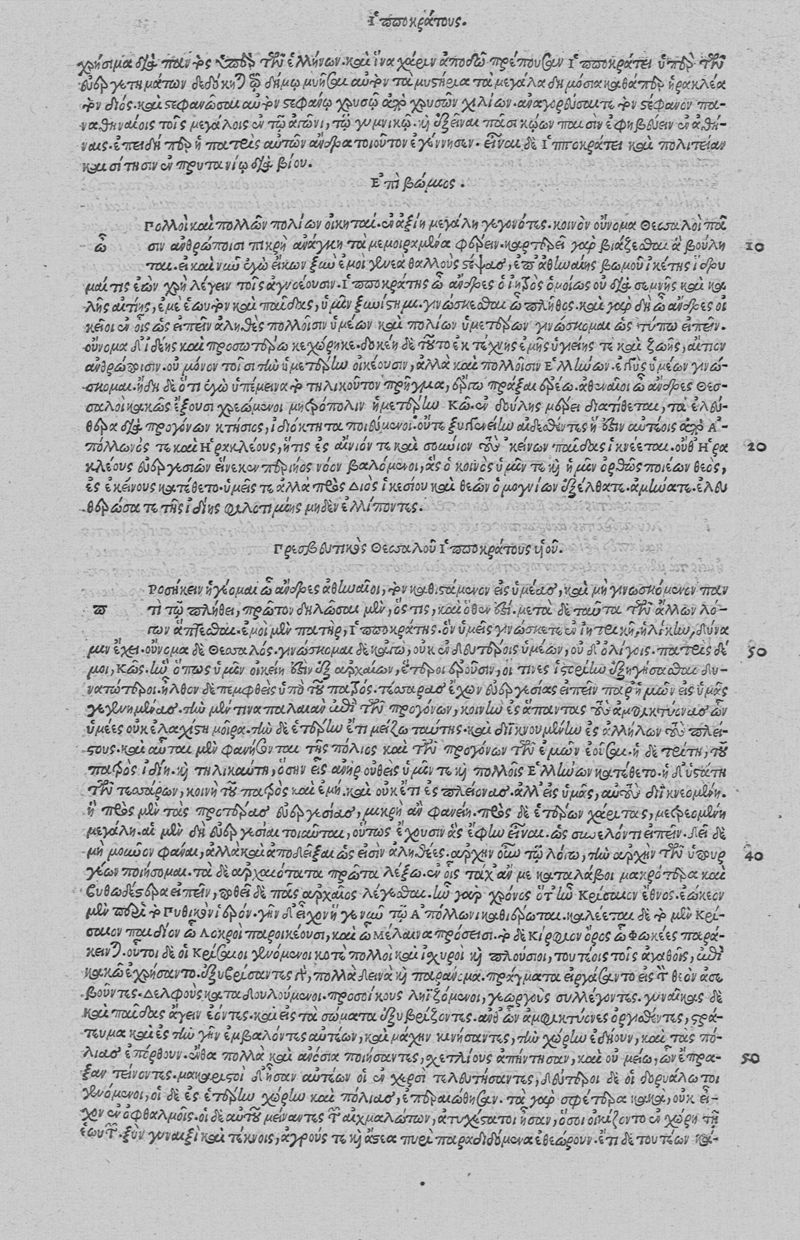 Ἱπποκράτους.
χρήσιμα διὰ παντὸς ὑπὲρ τῶν ἑλλήνων. καὶ ἵνα χάριν ἀποδῶ πρέπουσιν Ἱπποκράτει ὑπὲρ τῶν
εὐεργετημάτων δεδόκηται τῷ δήμῳ μυῆσαι αὐτὸν τὰ μυστήρια τὰ μεγάλα δημόσια καθάπερ ἡρακλέα
τὸν διός. καὶ στεφανῶσαι αὐτὸν στεφάνῳ χρυσῷ ἀπὸ χρυσῶν χιλίων. ἀναγορεῦσαί τε τὸν στέφανον πα-
ναθηναίοις τοῖς μεγάλοις ἐν τῷ ἀγῶνι, τῷ γυμνικῷ. καὶ ἐξεῖναι πᾶσι κῴων παισὶν ἐφηβεύειν ἐν ἀθή-
ναις. ἐπειδήπερ ἡ πατρὶς αὐτῶν ἄνδρα τοιοῦτον ἐγέννησεν. εἶναι δὲ Ἱπποκράτει καὶ πολιτείαν
καὶ σίτησιν ἐν πρυτανίῳ διὰ βίου.
Ἐπιβώμιος.
Πολλοὶ καὶ πολλῶν πολίων οἰκηταί. ἐν ἀξίῃ μεγάλῃ γεγονότες. κοινὸν οὔνομα Θεσσαλοὶ πᾶ
ὦ σιν ἀνθρώποισι πικρὴ ἀνάγκη τὰ μεμοιραμένα φέρειν. καρτερεῖ γὰρ βιάζεσθαι ἃ βούλη 10
ται. εἰ καὶ νῦν ἐγὼ εἴκων ξὺν ἐμοὶ γενεᾷ θαλλοὺς στέψας, ἐπ' ἀθηναίης βωμοῦ ἱκέτης ἵδρυ
μαι τίς ἐὼν χρὴ λέγειν τοῖς ἀγνοεῦσιν. Ἱπποκράτης ὦ ἄνδρες ὁ ἰητρὸς ὁμοίως οὐ διὰ σεμνῆς καὶ κα
λῆς αἰτίης, ἐμὲ ἑωυτὸν καὶ παῖδας, ὑμῖν ξυνίστημι. γινώσκεσθαι ὦ πλῆθος. καὶ γὰρ δὴ ὦ ἄνδρες οἱ
κεῖοι ἐν οἷς ὡς εἰπεῖν ἀληθὲς πολλοῖσιν ὑμέων καὶ πολίων ὑμετέρων γινώσκομαι ὡς τύπῳ εἰπεῖν.
οὔνομα δ' ἰδέης καὶ προσωτέρω κεχώρηκε. δοκέη δὲ τοῦτο ἐκ τέχνης ἐμῆς ὑγιείης τε καὶ ζωῆς, αἴτιον
ἀνθρώποισιν. οὐ μόνον τοῖσι τὴν ὑμετέρην οἰκέουσιν, ἀλλὰ καὶ πολλοῖσιν Ἑλλήνων. ἐγγὺς ὑμέων γινώ-
σκομαι. ἤδη δὲ ὅτι ἐγὼ ὑπέμεινα τὸ τηλικοῦτον πρῆγμα, ὅρτω πράξαι ὀρέω. ἀθηναῖοι ὦ ἄνδρες Θεσ-
σαλοὶ κακῶς ἕξουσι χρεώμενοι μητρόπολιν ἡμετέρην Κῶ. ἐν δούλης μέρει διατίθεται, τὰ ἐλεύ-
θερα διὰ προγόνων κτήσιος, ἰδιόκτητα ποιεύμενοι. οὔτε ξυγγενείην αἰδεσθέντες ἥ ἐστιν αὐτέοις ἀπὸ Ἀ-
πόλλωνός τε καὶ Ἡρακλέους, ἥτις ἐς αἴνιόν τε καὶ σώνιον τοὺς κείνων παῖδας ἱκνέεται. οὐθ' Ἡρα 20
κλέους εὐεργεσιῶν εἵνεκεν περὶ ἧς νόον βαλόμενοι, ἃς ὁ κοινὸς ὑμῖν τε καὶ ἡμῖν ὀρθῶς ποιέων θεὸς,
ἐς ἐκείνους κατέθετο. ὑμεῖς τε ἀλλὰ πρὸς Διὸς ἱκεσίου καὶ θεῶν ὁμογνίων ἐξέλθατε. ἀμύνατε. ἐλευ
θερώσατέ τε τῆς ἰδίης φιλοτιμίης μηδὲν ἐλλίποντες.
Πρεσβευτικὸς Θεσσαλοῦ Ἱπποκράτους υἱοῦ.
Ροσήκειν ἡγέομαι ὦ ἄνδρες ἀθηναῖοι, τὸν καθιστάμενον εἰς ὑμέας, καὶ μὴ γινωσκόμενον παν
π τὶ τῷ πλήθει, πρῶτον δηλῶσαι μὲν, ὅς τις, καὶ ὅθεν ἐστί. μετὰ δὲ ταῦτα τῶν ἄλλων λό-
γων ἅπτεσθαι. ἐμοὶ μὲν πατὴρ, Ἱπποκράτης. ὃν ὑμεῖς γινώσκετε ἐν ἰητρικῇ, ἡλίκην, δύνα
μιν ἔχει. οὔνομα δὲ Θεσσαλός. γινώσκομαι δὲ κἀγὼ, οὐκ ἐν δευτέροις ὑμέων, οὐδ' ὀλίγοις. πατρὶς δέ 30
μοι, Κῶς. ἣν ὅπως ὑμῖν οἰκείη ἐστὶν ἐξ ἀρχαίων, ἕτεροι ἐροῦσιν, οἵ τινες ἱστορίην ἐξηγήσασθαι δυ-
νατώτεροι. ἦλθον δὲ πεμφθεὶς ὑπὸ τοῦ πατρός. τέσσαρας ἔχων εὐεργεσίας εἰπεῖν παρ' ἡμῶν εἰς ὑμᾶς
γεγενημένας. τὴν μέν τινα παλαιὰν ἐπὶ τῶν προγόνων, κοινὴν ἐς ἅπαντας τοὺς ἀμφικτύονας ὧν
ὑμέες οὐκ ἐλαχίστη μοῖρα. τὴν δὲ ἑτέρην ἔτι μείζω ταύτης. καὶ διικνουμένην ἐς ἑλλήνων τοὺς πλεί-
στους. καὶ αὗται μὲν φανήσονται τῆς πόλιος καὶ τῶν προγόνων τῶν ἐμῶν ἐοῦσαι. ἡ δὲ τρίτη, τοῦ
πατρὸς ἰδίη. καὶ τηλικαύτη, ὅσην εἷς ἀνὴρ οὐθεὶς ὑμῖν τε καὶ πολλοῖς Ἑλλήνων κατέθετο. ἡ δ' ὑστάτη
τῶν τεσσάρων, κοινὴ τοῦ πατρὸς καὶ ἐμή. καὶ οὐκ ἔτι ἐς πλείονας. ἀλλ' εἰς ὑμᾶς, αὐτοὺς διικνεομένη.
ἣ πρὸς μὲν τὰς προτέρας εὐεργεσίας, μικρὴ ἂν φανείη. πρὸς δὲ ἑτέρων χάριτας, μετρεομένη
μεγάλη. αἱ μὲν δὴ εὐεργεσίαι τοιαῦται, οὕτως ἔχουσιν ἃς ἔφην εἶναι. ὡς συνελόντι εἰπεῖν. δεῖ δὲ
μὴ μοῦνον φᾶναι, ἀλλὰ καὶ ἀποδεῖξαι ὡς εἰσὶν ἀληθέες. ἀρχὴν οὖν τῷ λόγῳ, τὴν ἀρχὴν τῶν ὑπουρ 40
γέων ποιήσομαι. τὰ δὲ ἀρχαιότατα πρῶτα λέξω. ἐν οἷς τάχ' ἄν με καταλάβοι μακρότερα καὶ
ἐυθωδέστερα εἰπεῖν, ποθεῖ δὲ πᾶς ἀρχαίως λέγεσθαι. ἦν γὰρ χρόνος ὅτ' ἦν Κρισαῖον ἔθνος. ἐώκεον
μὲν περὶ τὸ Πυθικὸν ἱερόν. γῆν δ' εἶχον ἣ γε νῦν τῷ Ἀπόλλωνι καθιέρωται. καλέεται δὲ τὸ μὲν Κρι-
σαῖον πεδίον ᾧ Λοκροὶ παροικέουσι, καὶ ᾧ Μέλαινα πρόσεισι. τὸ δὲ Κίρφιον ὄρος ᾧ Φωκέες παρά-
κεινται. οὗτοι δὲ οἱ Κρισαῖοι γενόμενοι κοτὲ πολλοὶ καὶ ἰσχυροὶ καὶ πλούσιοι, τουτέοις τοῖς ἀγαθοῖς, ἐπὶ
κακῷ ἐχρήσαντο. ἐξυβρίσαντες γὰρ, πολλὰ δεινὰ καὶ παράνομα. πράγματα εἰργάζοντο εἰς τὸν θεὸν ἀσε
βοῦντες. Δελφοὺς καταδουλούμενοι. προσοίκους ληϊζόμενοι, γεωργοὺς συλλέγοντες. γυναῖκας δὲ
καὶ παῖδας ἄγειν ἐόντες. καὶ εἰς τὰ σώματα ἐξυβρίζοντες. ἀνθ' ὧν ἀμφικτύονες ὀργισθέντες, στρά-
τευμα καὶ ἐς τὴν γῆν ἐμβαλόντες αὐτέων, καὶ μάχην κινήσαντες, τὴν χώρην ἐδῄουν, καὶ τὰς πό-
λιας ἐπέρθουν. ἔνθα πολλὰ καὶ ἀνόσια ποιήσαντες, σχετλίους ἀπήντησαν, καὶ οὐ μείω, ὧν ἔπρα- 50
ξαν τείνοντες. μακαριστοὶ δ' ἦσαν αὐτέων οἱ ἐν χερσὶ τελευτήσαντες, δεύτεροι δὲ οἱ δορυάλωτοι
γενόμενοι, οἱ δὲ ἐς ἑτέρην χώρην καὶ πόλιας, ἐπεραιώθησαν. τὰ γὰρ σφέτερα κακὰ, οὐκ εἶ-
χον ἐν ὀφθαλμοῖς. οἱ δὲ αὐτοῦ μείναντες τῶν αἰχμαλώτων, ἀτυχέστατοι ἦσαν, ὅσοι αἰκίζοντο ἐν χώρῃ τῇ
ἑωυτῶν. ξὺν γυναιξὶ καὶ τέκνοις, ἀγρούς τε καὶ ἄστεα πυρὶ παραδιδόμενα ἐθεώρουν. ἔτι δὲ τουτέων κά-